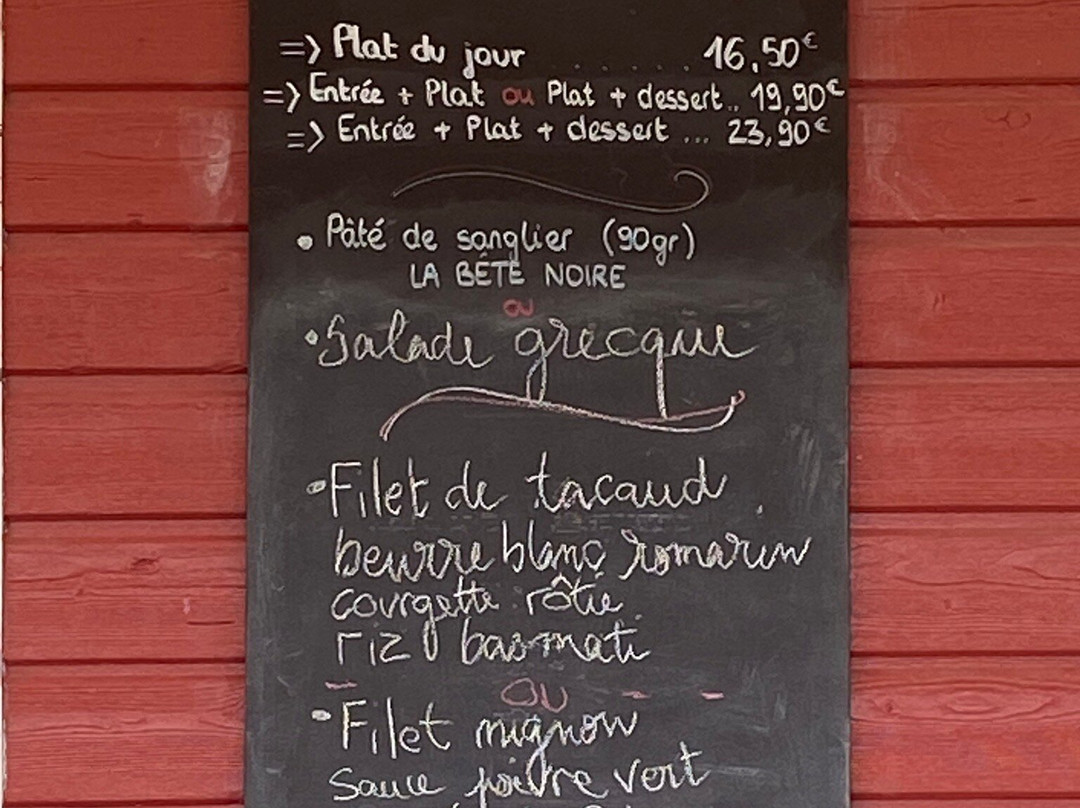 => Plat du jour ...... 16,50€
=> Entrée + Plat ou Plat + dessert.. 19,90€
=> Entrée + Plat + dessert ... 23,90€
• Pâté de sanglier (90gr)
LA BÊTE NOIRE
ou
• Salade grecque
• Filet de tacaud
beurre blanc romarin
courgette rôtie
riz basmati
- OU - -
• Filet mignon
sauce poivre vert